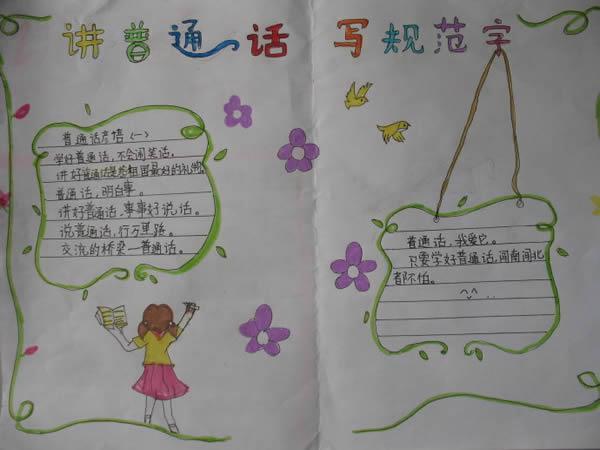 讲普通话 写规范字
普通话彦悟(一)
学好普通话,不会闹笑话。
讲好普通话是给祖国最好的礼物
普通话,明白事。
讲好普通话,事事好说话。
说普通话,行万里路。
交流的桥梁—普通话。
普通话,我爱它。
只要学好普通话,闯南闯北
都不怕。
^_^ . .